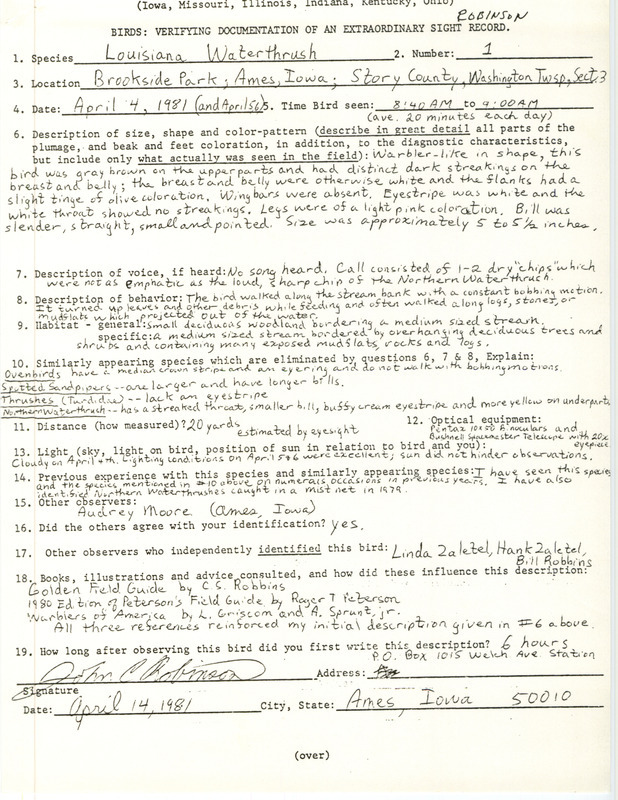 (Iowa, Missouri, Illinois, Indiana, Kentucky, Ohio)
ROBINSON
BIRDS: VERIFYING DOCUMENTATION OF AN EXTRAORDINARY SIGHT RECORD.
1. Species Louisiana Waterthrush 2. Number: 1
3. Location Brookside Park; Ames, Iowa; Story County, Washington Twsp, Sect. 3
4. Date: April 4, 1981 (and April 5,6) 5. Time Bird seen: 8:40 AM to 9:00 AM
(ave. 20 minutes each day)
6. Description of size, shape and color-pattern (describe in great detail all parts of the
plumage, and beak and feet coloration, in addition, to the diagnostic characteristics,
but include only what actually was seen in the field): Warbler-like in shape, this
bird was gray brown on the upperparts and had distinct dark streakings on the
breast and belly; the breast and belly were otherwise white and the flanks had a
slight tinge of olive coloration. Wingbars were absent. Eyestripe was white and the
white throat showed no streakings. Legs were of a light pink coloration. Bill was
slender, straight, small and pointed. Size was approximately 5 to 5½ inches.
7. Description of voice, if heard: No song heard. Call consisted of 1-2 dry "chips" which
were not as emphatic as the loud, sharp chip of the Northern Waterthrush.
8. Description of behavior: The bird walked along the stream bank with a constant bobbing motion.
It turned up leaves and other debris while feeding and often walked along logs, stones, or
mudflats which projected out of the water.
9. Habitat - general: small deciduous woodland bordering a medium sized stream.
specific: a medium sized stream bordered by overhanging deciduous trees and
shrubs and containing many exposed mudflats, rocks and logs.
10. Similarly appearing species which are eliminated by questions 6, 7 & 8, Explain:
Ovenbirds have a median crown stripe and an eyering and do not walk with bobbing motions.
Spotted Sandpipers -- are larger and have longer bills.
Thrushes (Turdidae) -- lack an eyestripe
Northern Waterthrush -- has a streaked throat, smaller bill, buffy cream eyestripe and more yellow on underparts
11. Distance (how measured)? 20 yards 12. Optical equipment:
estimated by eyesight Pentax 10x50 Binoculars and
Bushnell Spacemaster Telescope with 20x
eyepiece.
13. Light (sky, light on bird, position of sun in relation to bird and you):
Cloudy on April 4th. Lighting conditions on April 5 & 6 were excellent; sun did not hinder observations.
14. Previous experience with this species and similarly appearing species: I have seen this species
and the species mentioned in #10 above on numerals occasions in previous years. I have also
identified Northern Waterthrushes caught in a mist net in 1979.
15. Other observers:
Audrey Moore (Ames, Iowa)
16. Did the others agree with your identification? yes.
17. Other observers who independently identified this bird: Linda Zaletel, Hank Zaletel,
Bill Robbins
18. Books, illustrations and advice consulted, and how did these influence this description:
Golden Field Guide by C.S. Robbins
1980 Edition of Peterson's Field Guide by Roger T Peterson
Warblers of America by L. Griscom and A. Sprunt, jr.
All three references reinforced my initial description given in #6 above.
19. How long after observing this bird did you first write this description? 6 hours
P.O. Box 1015 Welch Ave. Station
John C Robinson Address:
Signature
Date: April 14, 1981 City, State: Ames, Iowa 50010
(over)